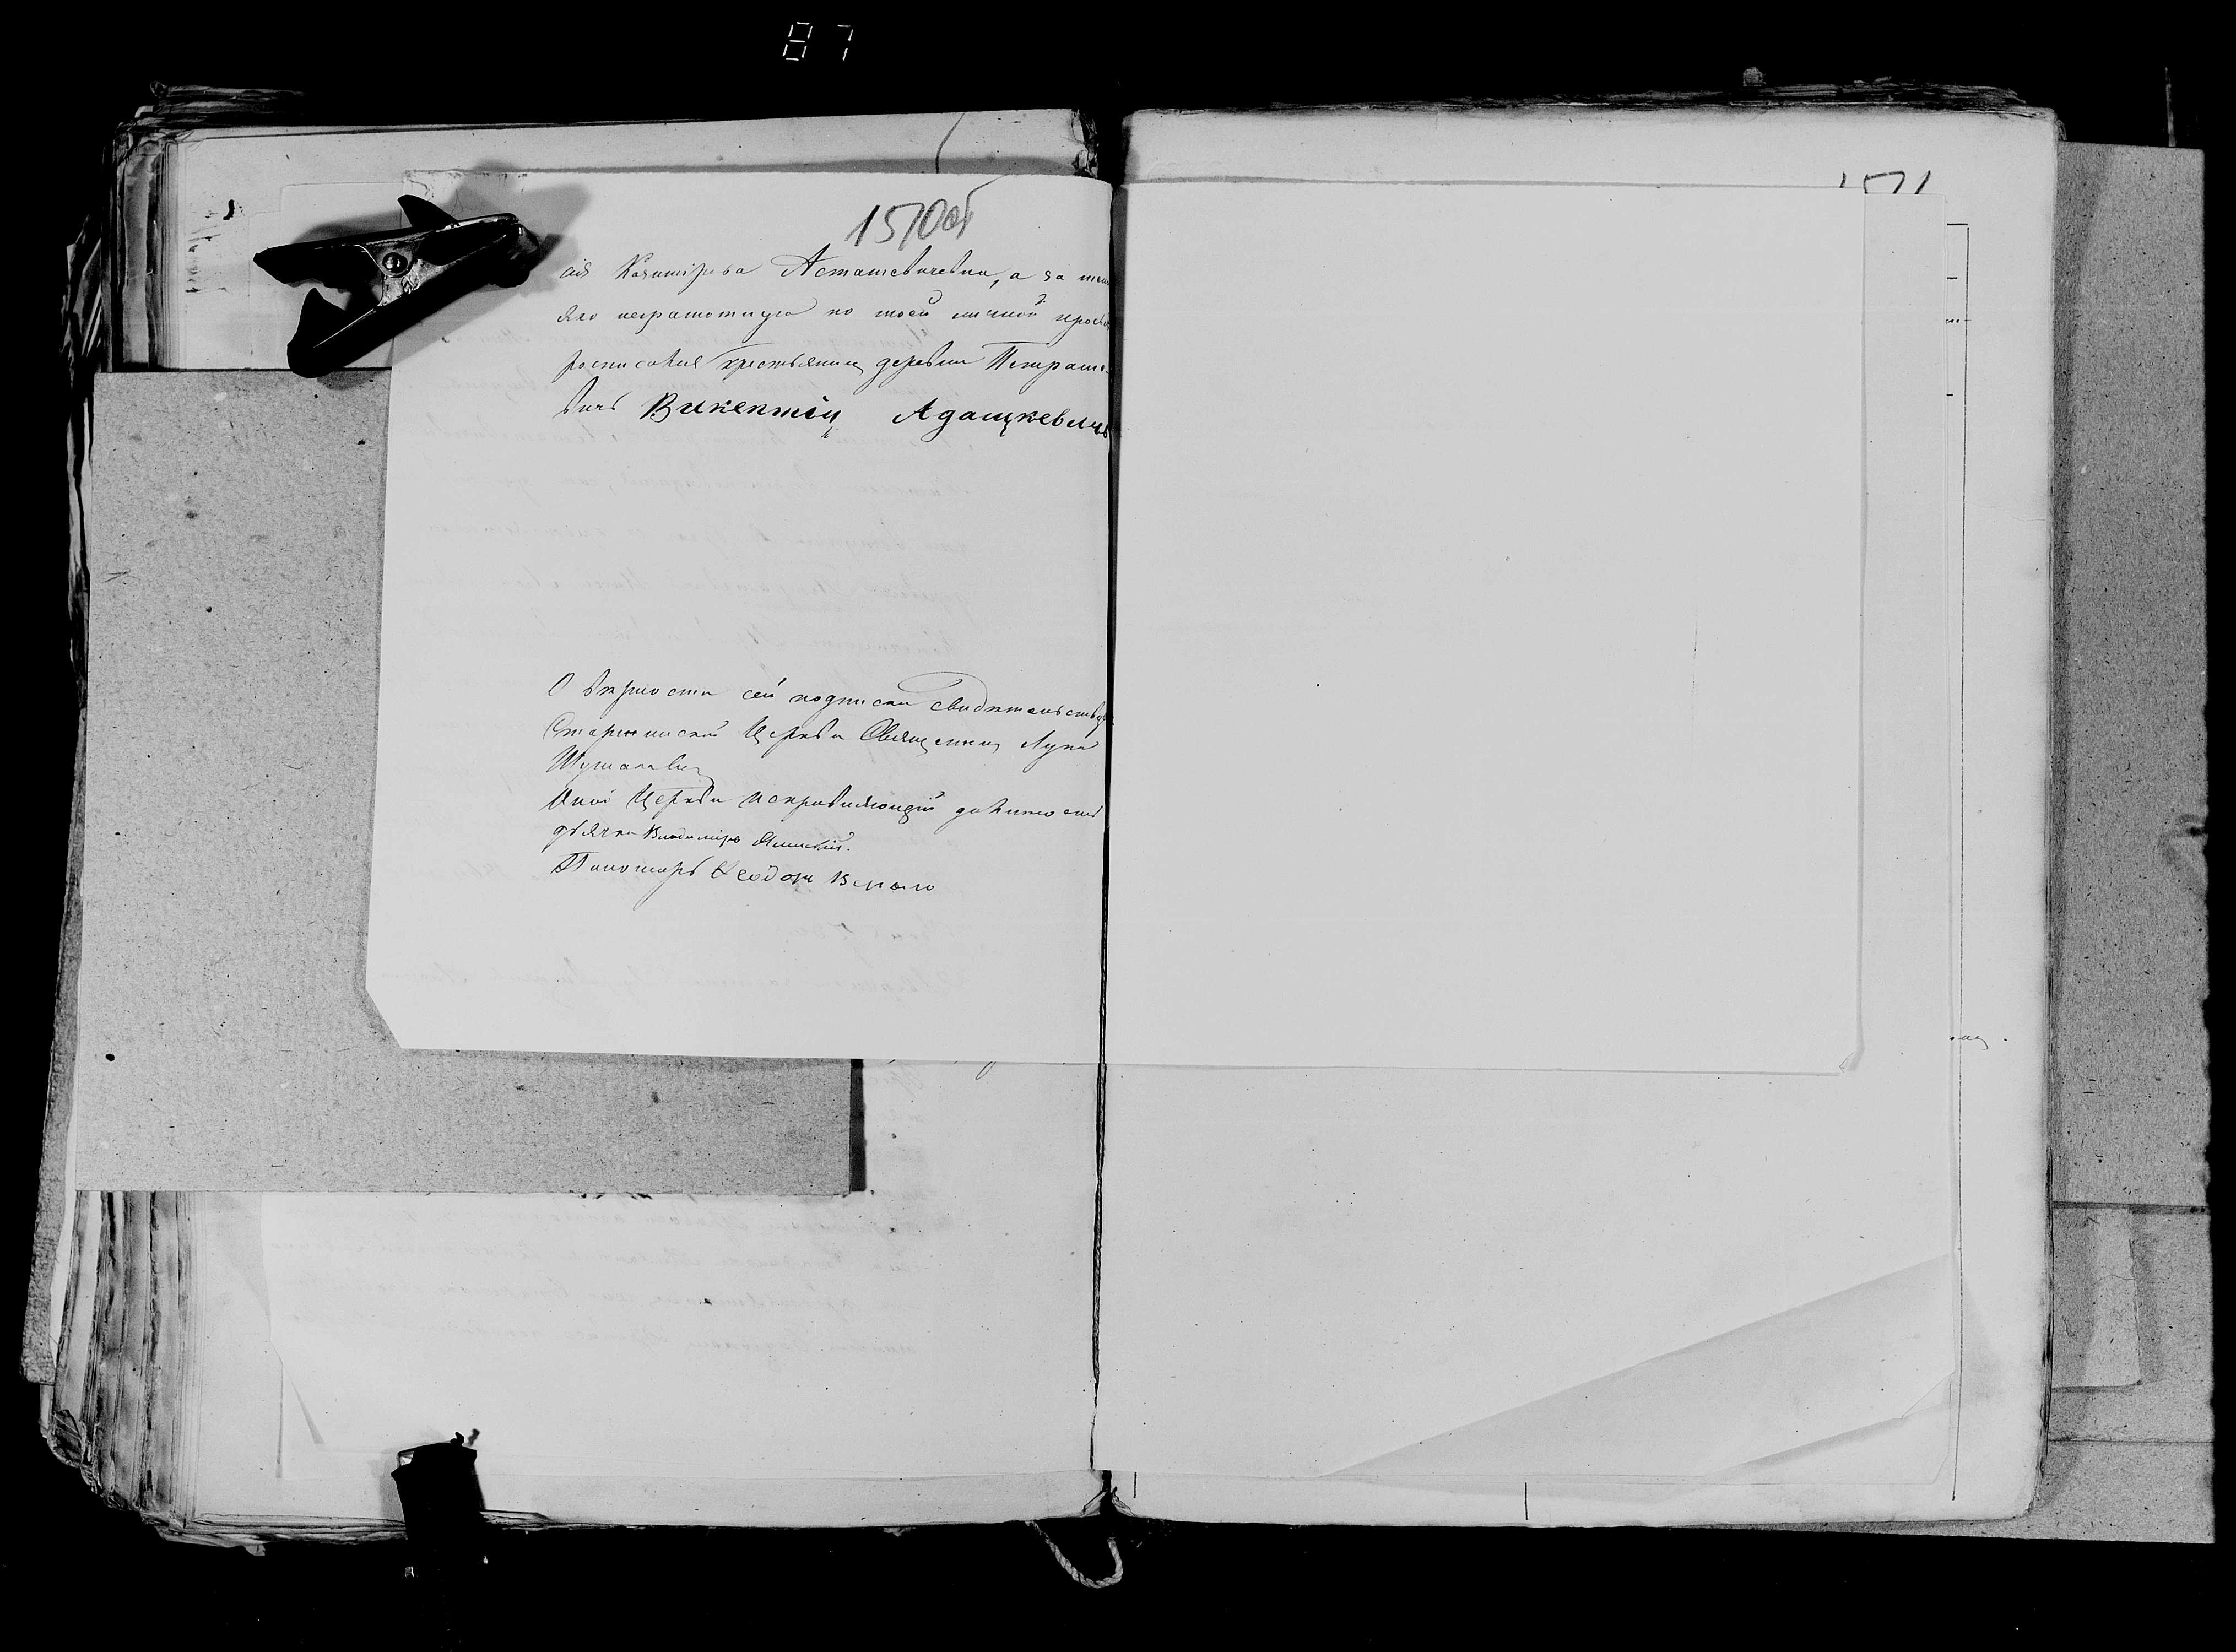 87
1570об
1571
сія Казимірова Асташевичевна, а за нея
яко неграмотную по моей личной прозьбѣ
росписался крестьянинъ деревни Петраше-
вичъ Викентій Адашкевичъ
О вѣрности сей подписки свидѣтельствую
Церкви Священникъ Лука
Оной Церкви исправляющій должность
дьячка Владиміръ
Пономарь Ѳеодоръ